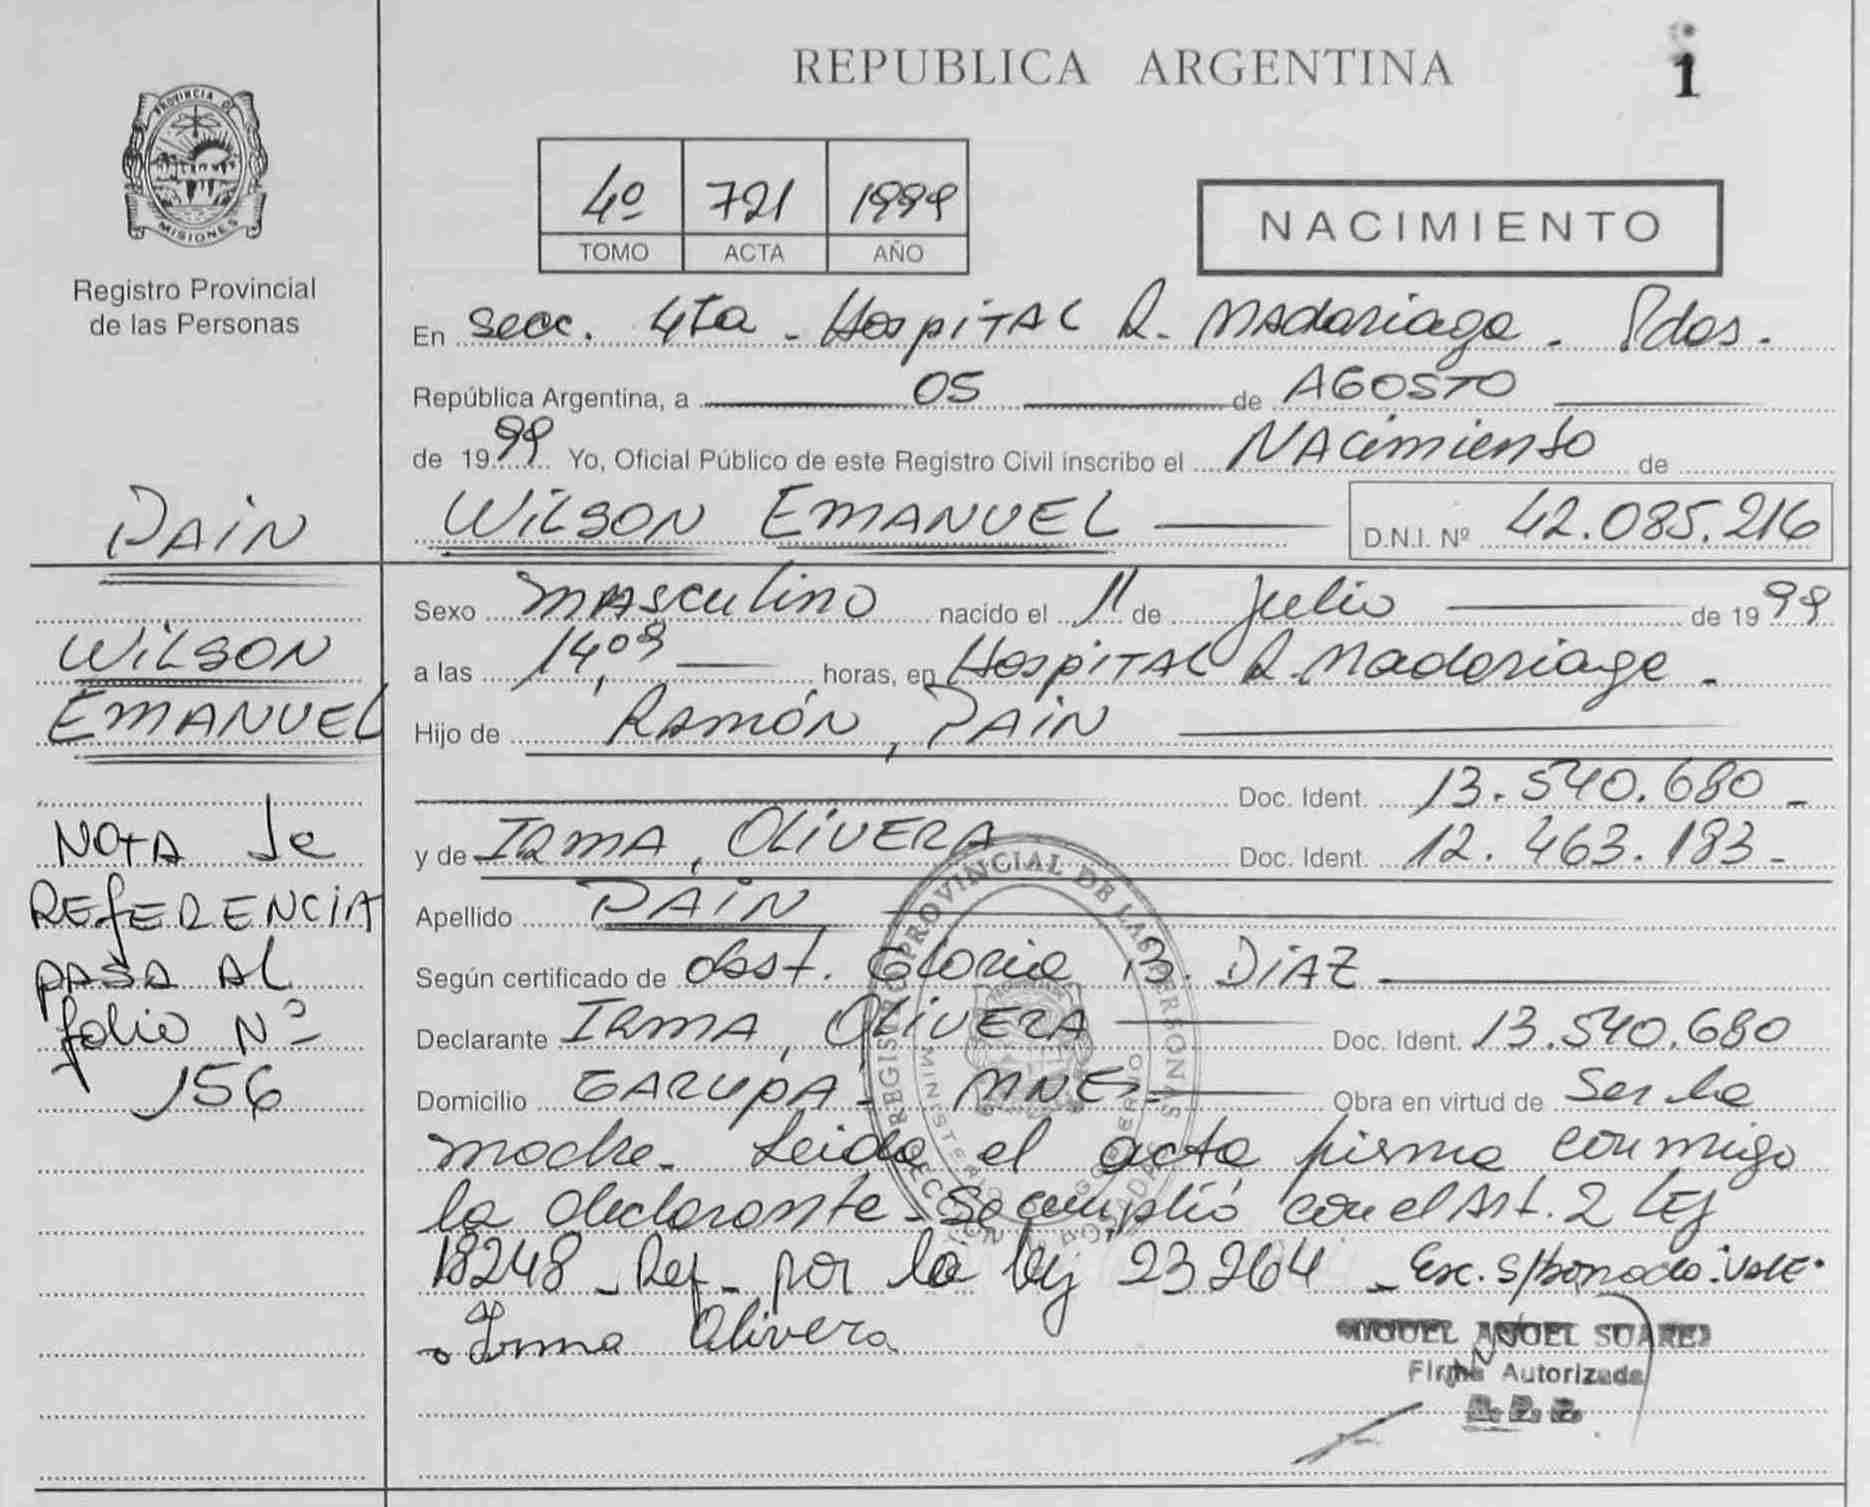 REPUBLICA ARGENTINA
1
PROVINCIA DE
MISIONES
Registro Provincial
de las Personas
4º 721 1999
TOMO ACTA AÑO
NACIMIENTO
En Secc. 4Ta - Hospital R. Madariaga. Pdas.
República Argentina, a 05 de AGOSTO
de 1999 Yo, Oficial Público de este Registro Civil inscribo el NAcimiento de
WILSON EMANUEL D.N.I. Nº 42.085.216
PAIN
WILSON
EMANUEL
NOTA de
REfERENCIA
PASA Al
folio Nº
156
Sexo MASCulino nacido el 11 de Julio de 1999
a las 14,09 horas, en Hospital R. Madariaga.
Hijo de RAMÓN, PAIN
Doc. Ident. 13.540.680-
y de IRMA, OLIVERA Doc. Ident. 12.463.183-
Apellido PAIN
Según certificado de obst. Gloria B. DIAZ
Declarante IRMA, OLIVERA Doc. Ident. 13.540.680
Domicilio GARUPA - MNES Obra en virtud de Ser la
madre. Leida el acta firma conmigo
la declarante. Se cumplió con el Art. 2 Ley
18248 - Ref. por la ley 23264 - Esc. s/borrado: VALE.
Irma Olivera
MIGUEL ANGEL SUAREZ
Firma Autorizada
R. P. P.
REGISTRO PROVINCIAL DE LAS PERSONAS
MINISTERIO GOBIERNO